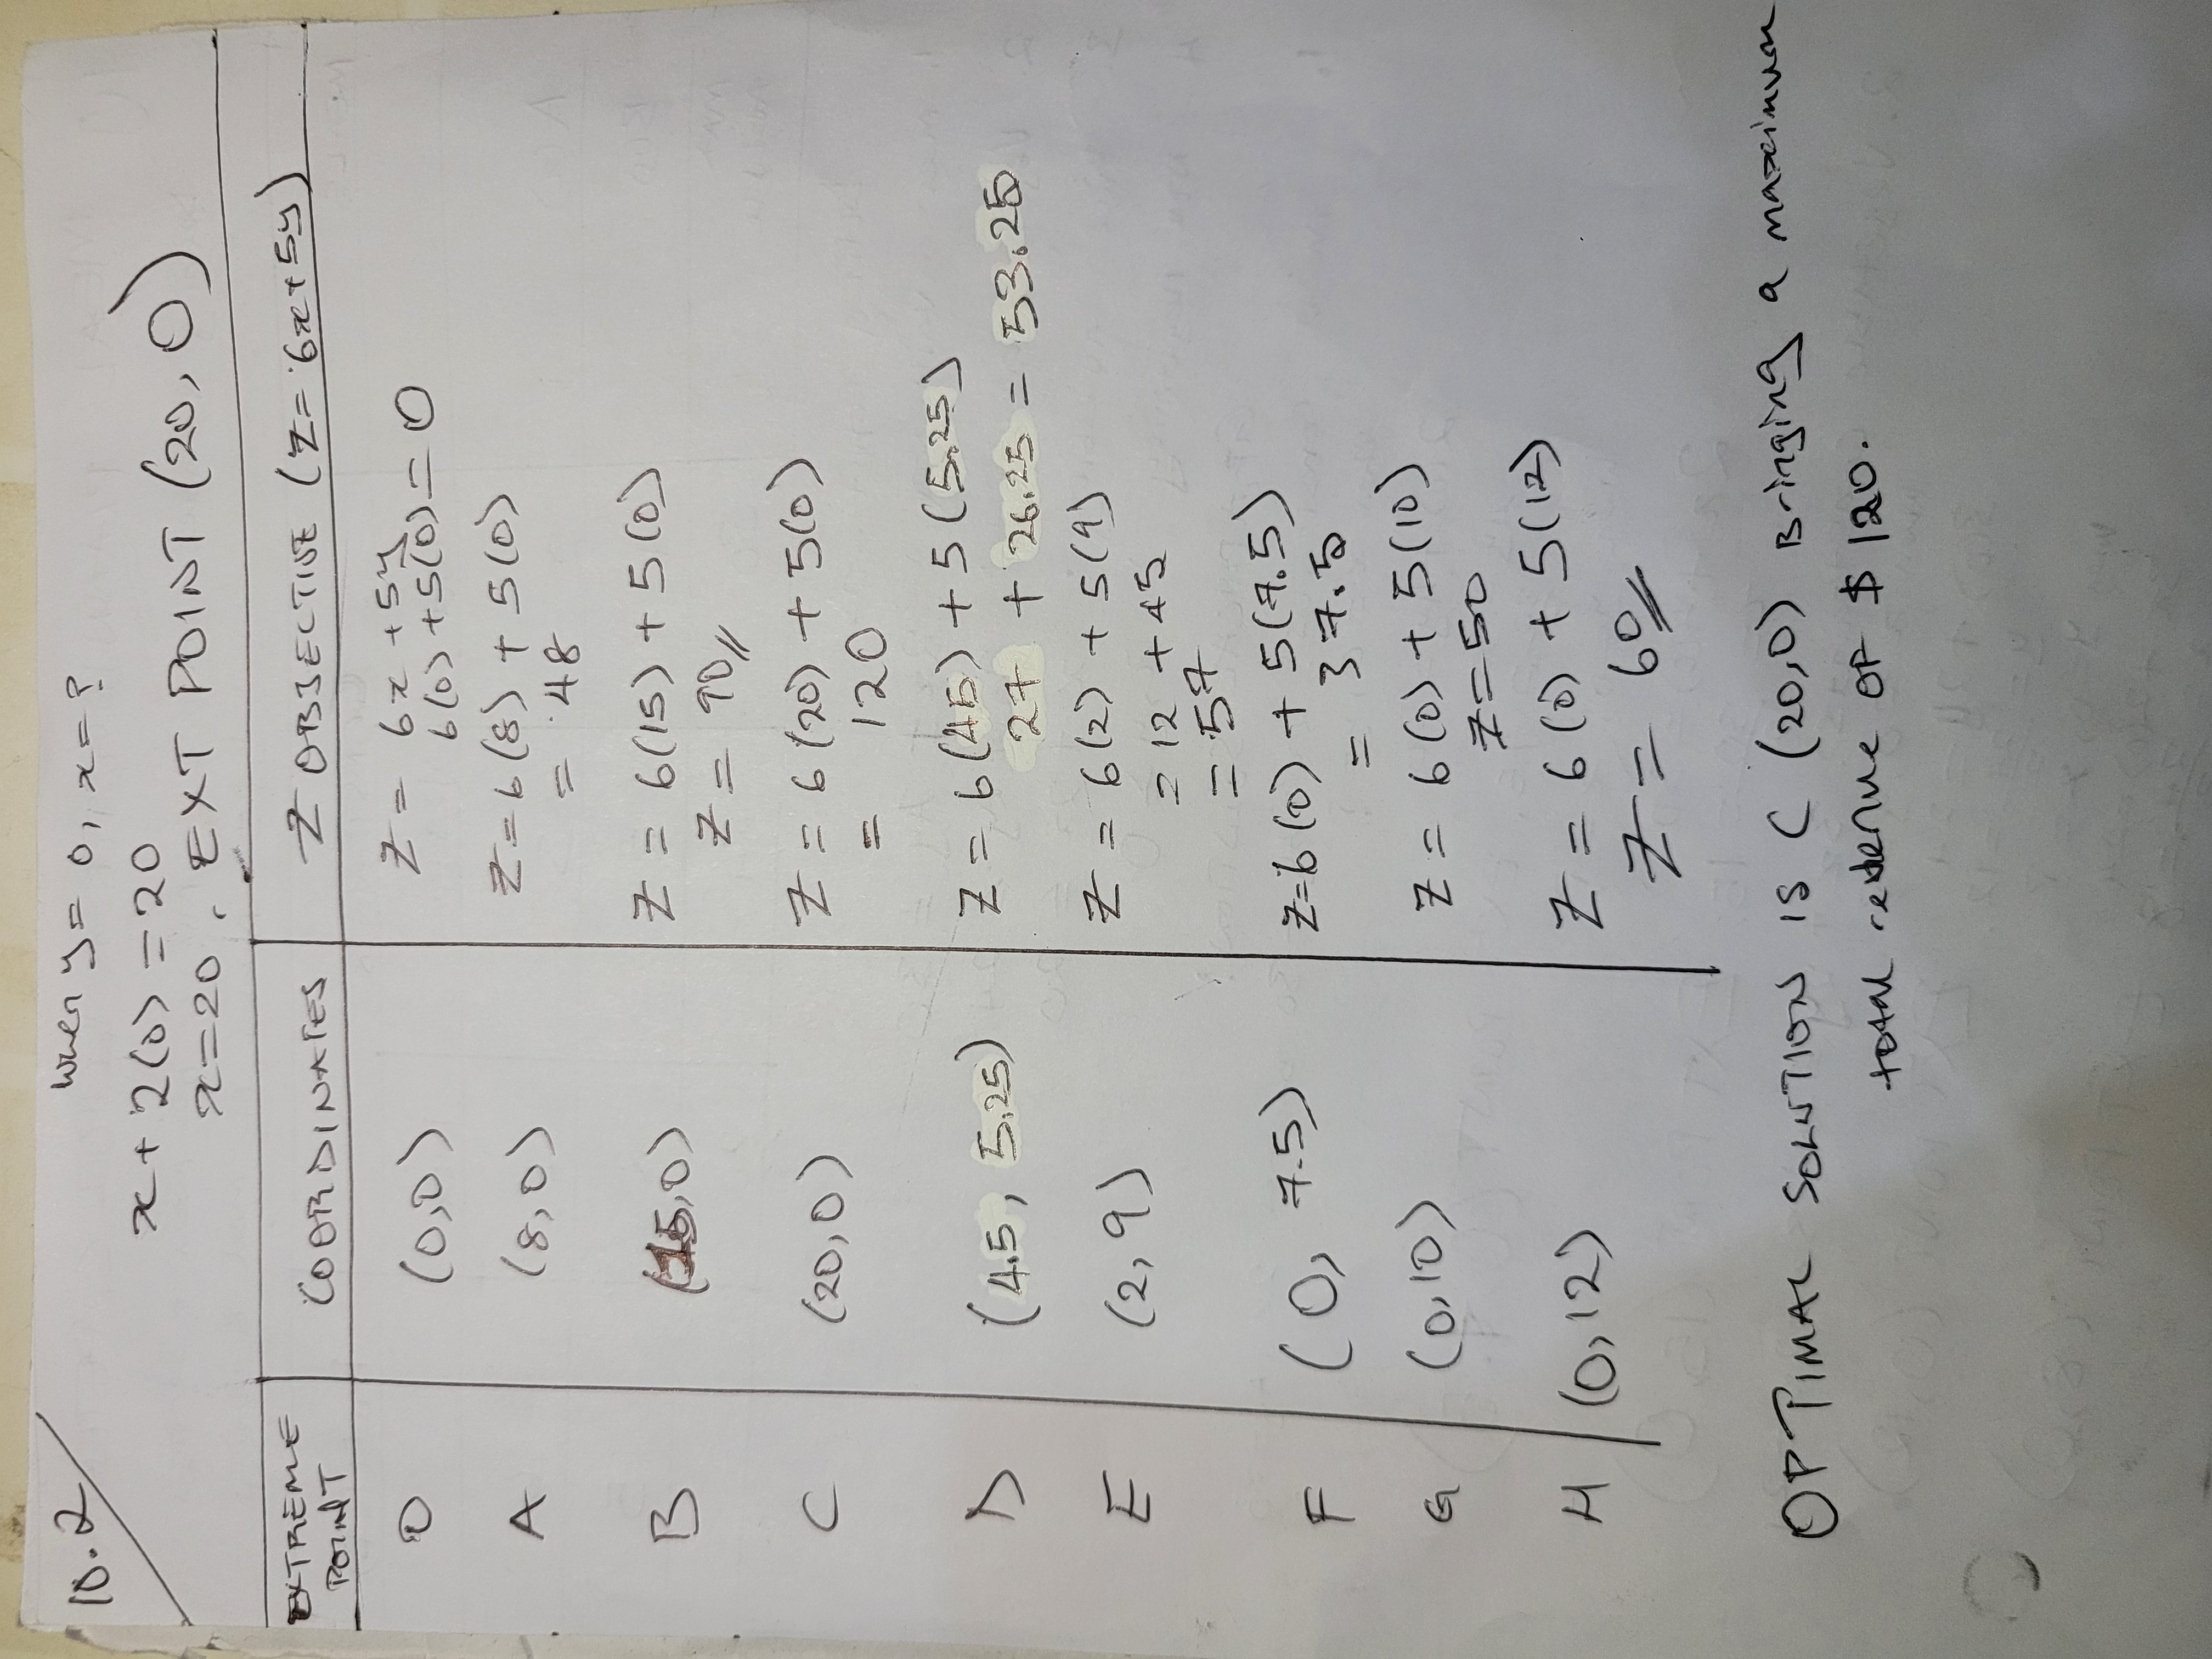 10.2
when y = 0, x = ?
x + 2(0) = 20
x = 20, EXT POINT (20, 0)
EXTREME POINT COORDINATES Z OBJECTIVE (Z = 6x + 5y)
O (0,0) Z = 6x + 5y
6(0) + 5(0) = 0
A (8,0) Z = 6(8) + 5(0)
= 48
B (15,0) Z = 6(15) + 5(0)
Z = 90//
C (20,0) Z = 6(20) + 5(0)
= 120
D (4.5, 5.25) Z = 6(4.5) + 5(5.25)
27 + 26.25 = 53.25
E (2,9) Z = 6(2) + 5(9)
= 12 + 45
= 57
F (0, 7.5) Z = 6(0) + 5(7.5)
= 37.5
G (0,10) Z = 6(0) + 5(10)
Z = 50
H (0,12) Z = 6(0) + 5(12)
Z = 60//
OPTIMAL SOLUTION IS C (20,0) Bringing a maximum
total revenue OF $ 120.